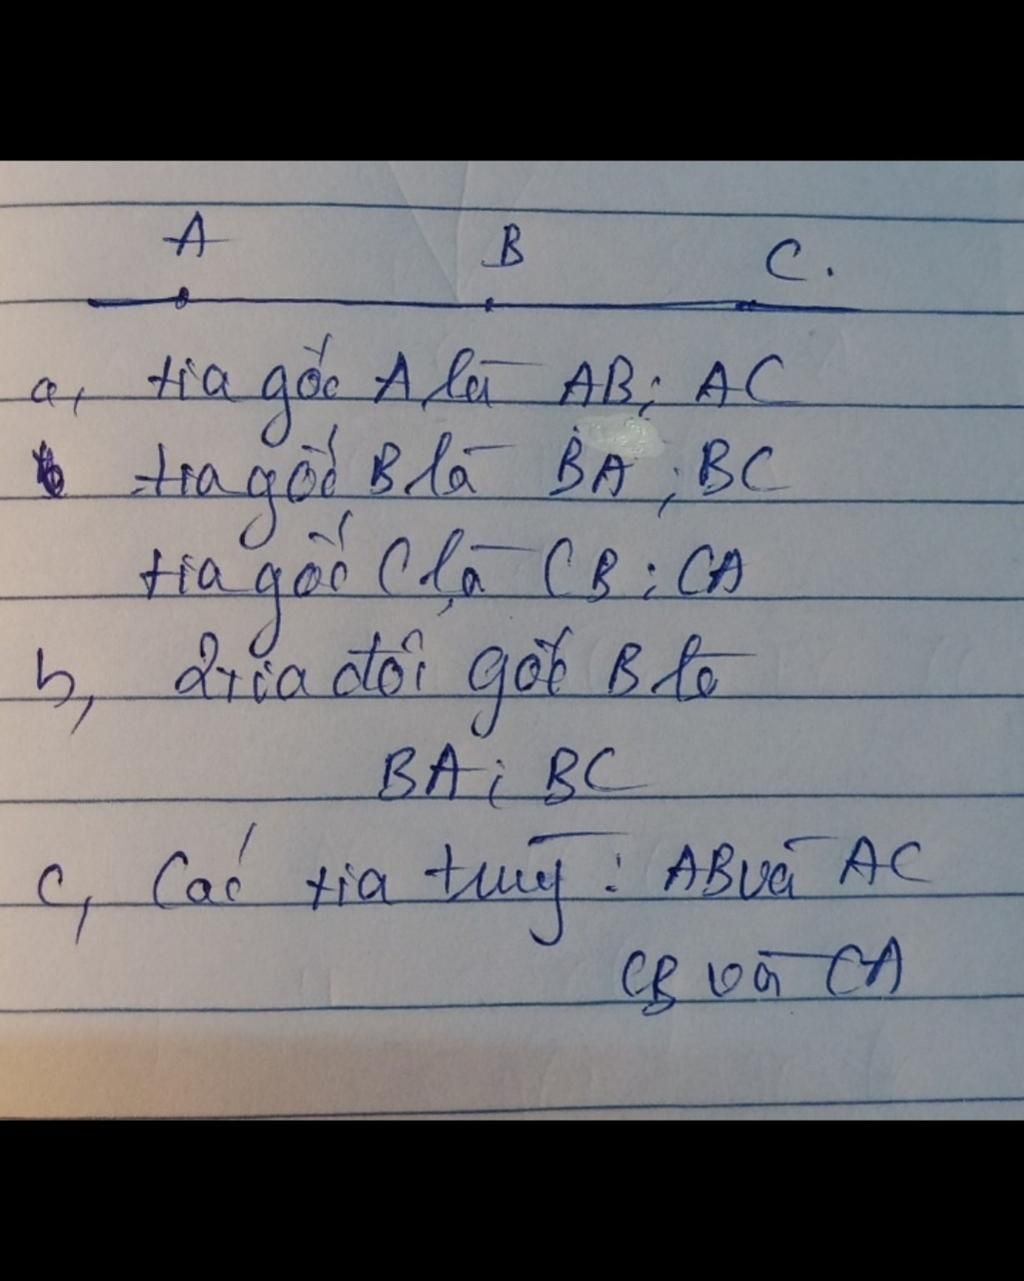 A B C.
a, tia gốc A là AB; AC
tia gốc B là BA; BC
tia gốc C là CB; CA
b, 2 tia đối gốc B là
BA; BC
c, Các tia trùng: AB và AC
CB và CA